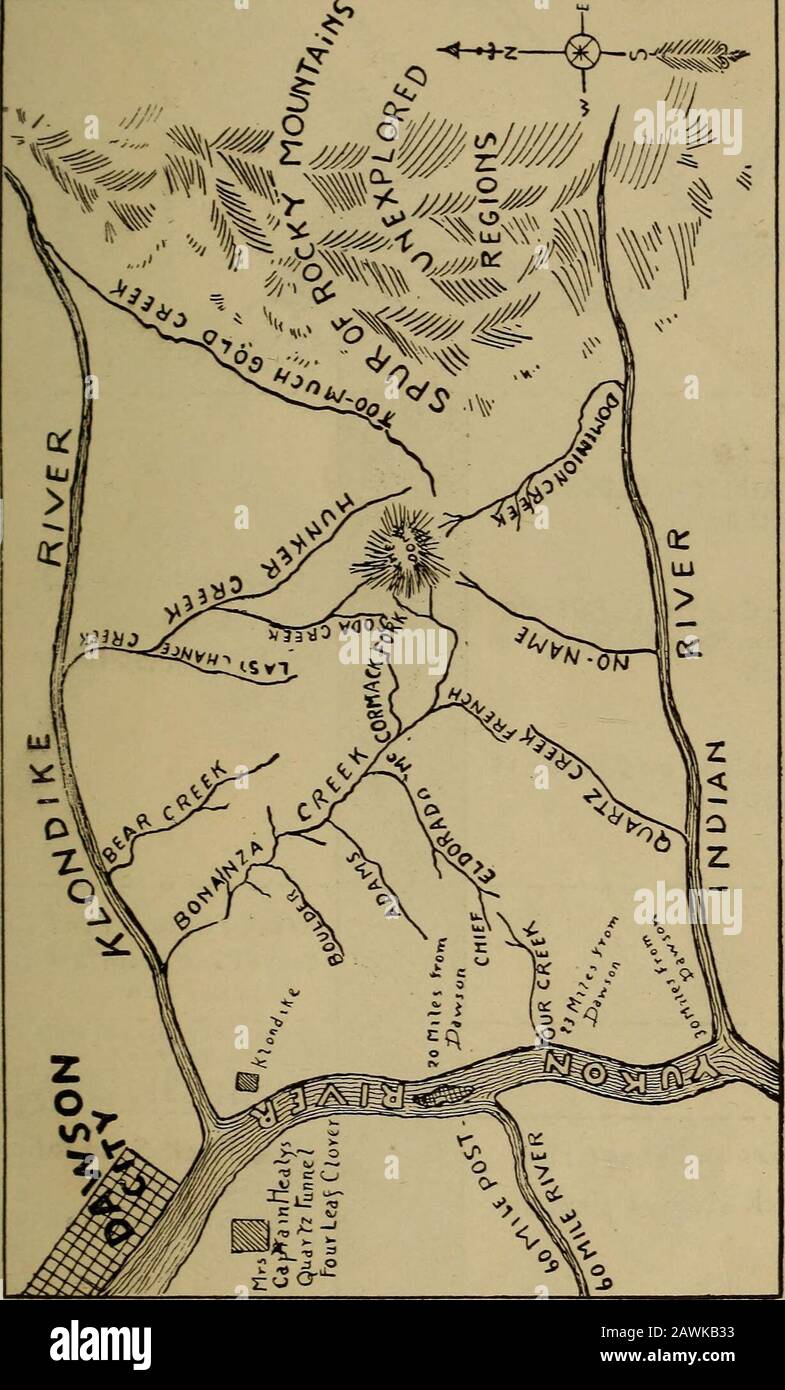 DAWSON
CITY
KLONDIKE RIVER
TOO-MUCH GOLD CREEK
SPUR OF ROCKY MOUNTAINS
UNEXPLORED
REGIONS
N
S
E
W
HUNKER CREEK
LAST CHANCE CREEK
SODA CREEK
THE
DOME
BEAR CREEK
BONANZA CREEK
Mc CORMACK FORK
BOULDER
ADAMS
ELDORADO
CHIEF
OUR CREEK
FRENCH
QUARTZ CREEK
NO-NAME
DOMINION CREEK
INDIAN RIVER
YUKON RIVER
Klondike
Mrs
Captain Healys
Quartz Tunnel
Four Leaf Clover
20 Miles from
Dawson
23 Miles from
Dawson
30 Miles from
Dawson
60 MILE POST-
60 MILE RIVER
alamy
Image ID: 2AWKB33
www.alamy.com